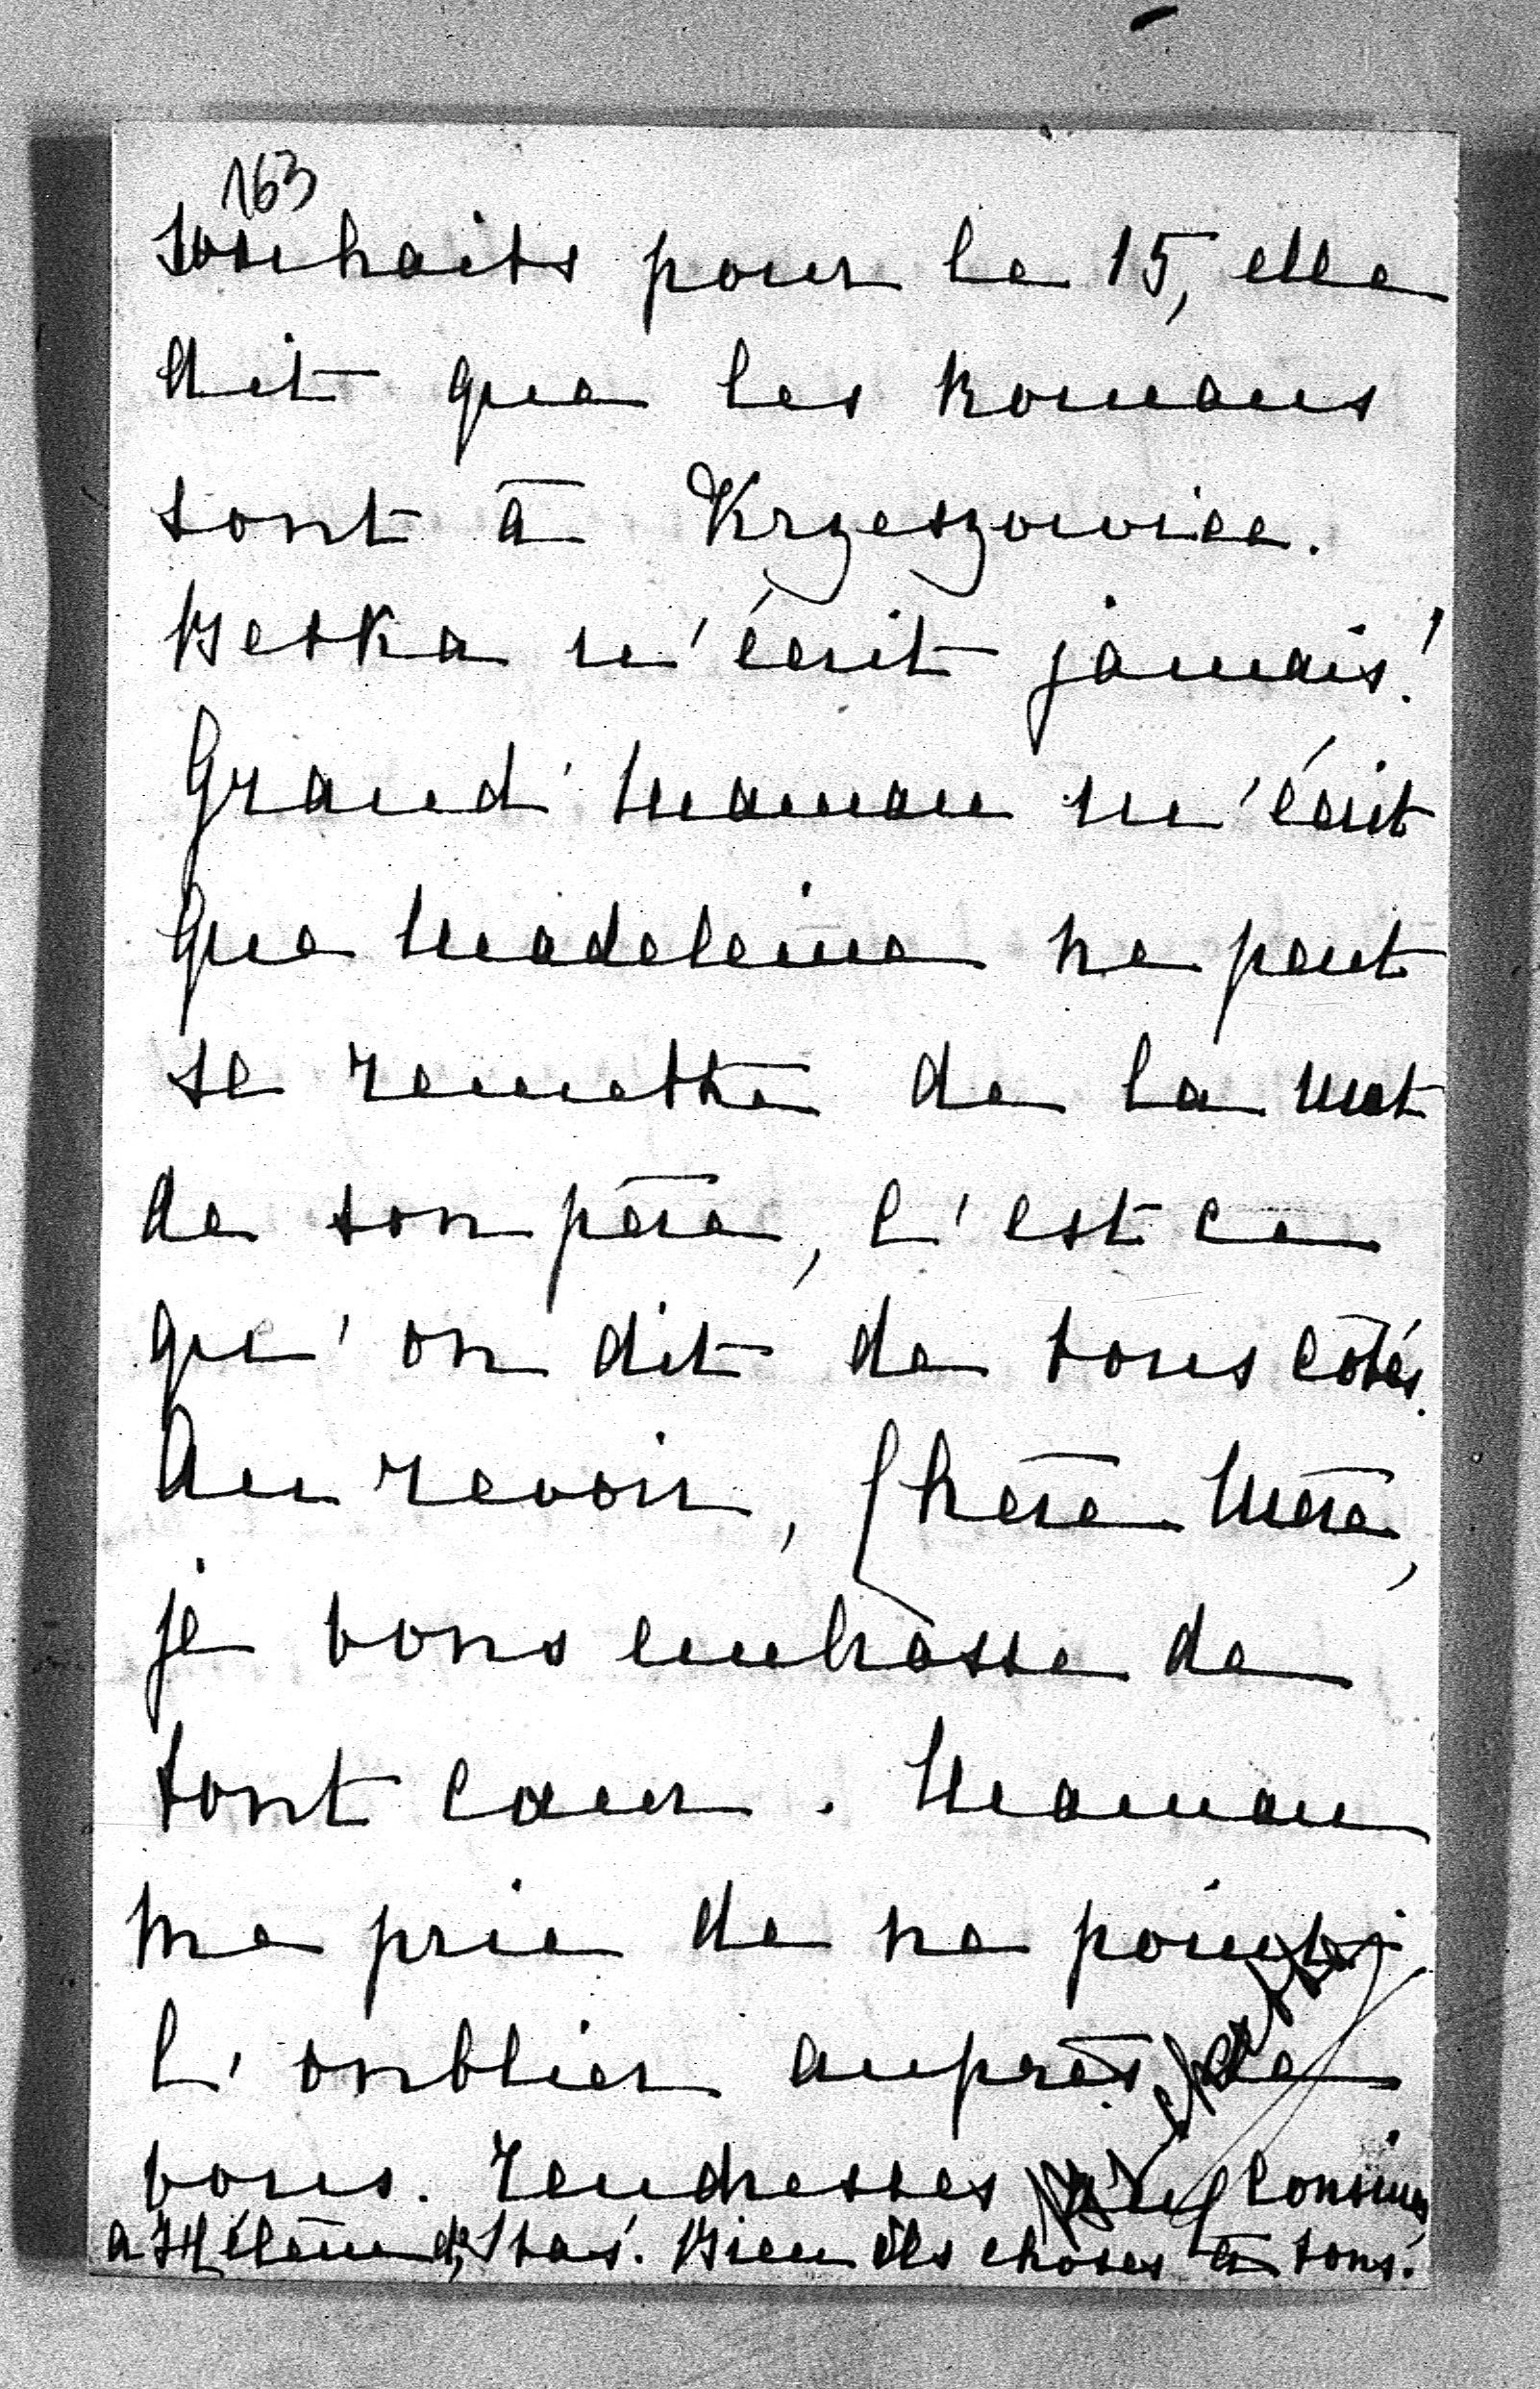 163
souhaits pour le 15, elle
dit que les Romans
sont à Krzeszowice.
Betka n'écrit jamais!
Grand'Maman m'écrit
que Madeleine ne peut
se remettre de la mort
de son père, c'est ce
qu'on dit de tous côtés.
Au revoir, Chère Mère,
je vous embrasse de
tout cœur. Maman
me prie de ne point
l'oublier auprès de
vous. Tendresses aux Cousines
à Hélène et Stas. Bien des choses à tous.